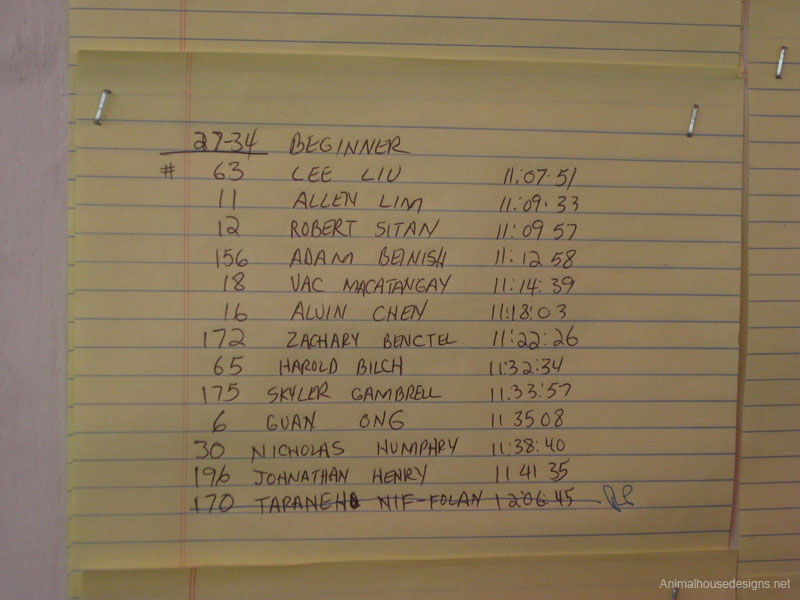 27-34 BEGINNER
# 63 LEE LIU 11:07:51
11 ALLEN LIM 11:09:33
12 ROBERT SITAN 11:09 57
156 ADAM BEINISH 11:12 58
18 VAC MACATANGAY 11:14:39
16 ALVIN CHEN 11:18:03
172 ZACHARY BENCTEL 11:22:26
65 HAROLD BILCH 11:32:34
175 SKYLER GAMBRELL 11.33:57
6 GUAN ONG 11 35 08
30 NICHOLAS HUMPHRY 11:38:40
196 JOHNATHAN HENRY 11 41 35
170 NIF-FOLAN 12:06.45
Animalhousedesigns.net